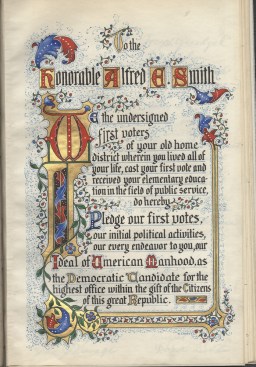 To the
Honorable Alfred E. Smith
We the undersigned
first voters
of your old home
district wherein you lived all of
your life, cast your first vote and
received your elementary educa-
tion in the field of public service,
do hereby
Pledge our first votes,
our initial political activities,
our every endeavor to you, our
Ideal of American Manhood, as
the Democratic Candidate for the
highest office within the gift of the Citizens
of this great Republic.